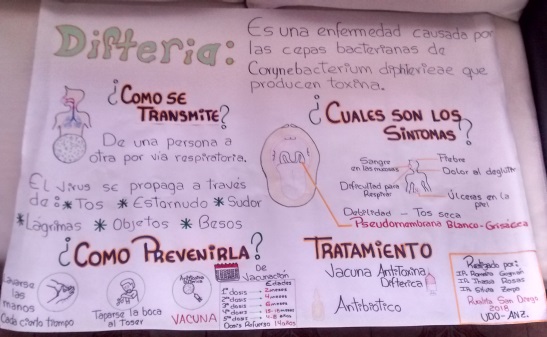 Difteria:
Es una enfermedad causada por
las cepas bacterianas de
Corynebacterium diphterieae que
producen toxina.
¿Como se
Transmite?
De una persona a
otra por vía respiratoria.
El virus se propaga a través
de: * Tos * Estornudo * Sudor
* Lágrimas * Objetos * Besos
¿Cuales son los
Síntomas?
Sangre
en las mucosas
Fiebre
Dolor al deglutir
Dificultad para
Respirar
Úlceras en la
piel
Debilidad - Tos seca
Pseudomembrana Blanco-Grisácea
¿Como Prevenirla?
Lavarse
las
manos
Cada cierto tiempo
Taparse la boca
al Toser
VACUNA
De
Vacunación
Edades
1ª dosis 2 meses
2ª dosis 4 meses
3ª dosis 6 meses
4ª dosis
5ª dosis
Dosis Refuerzo 14 años
Tratamiento
Vacuna Antitoxina
Difterica
Antibiótico
Realizado por:
San Diego
2018
UDO-ANZ.